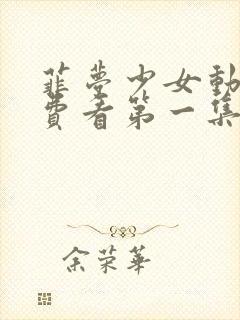 菲夢少女動
費看第一集
余荣華